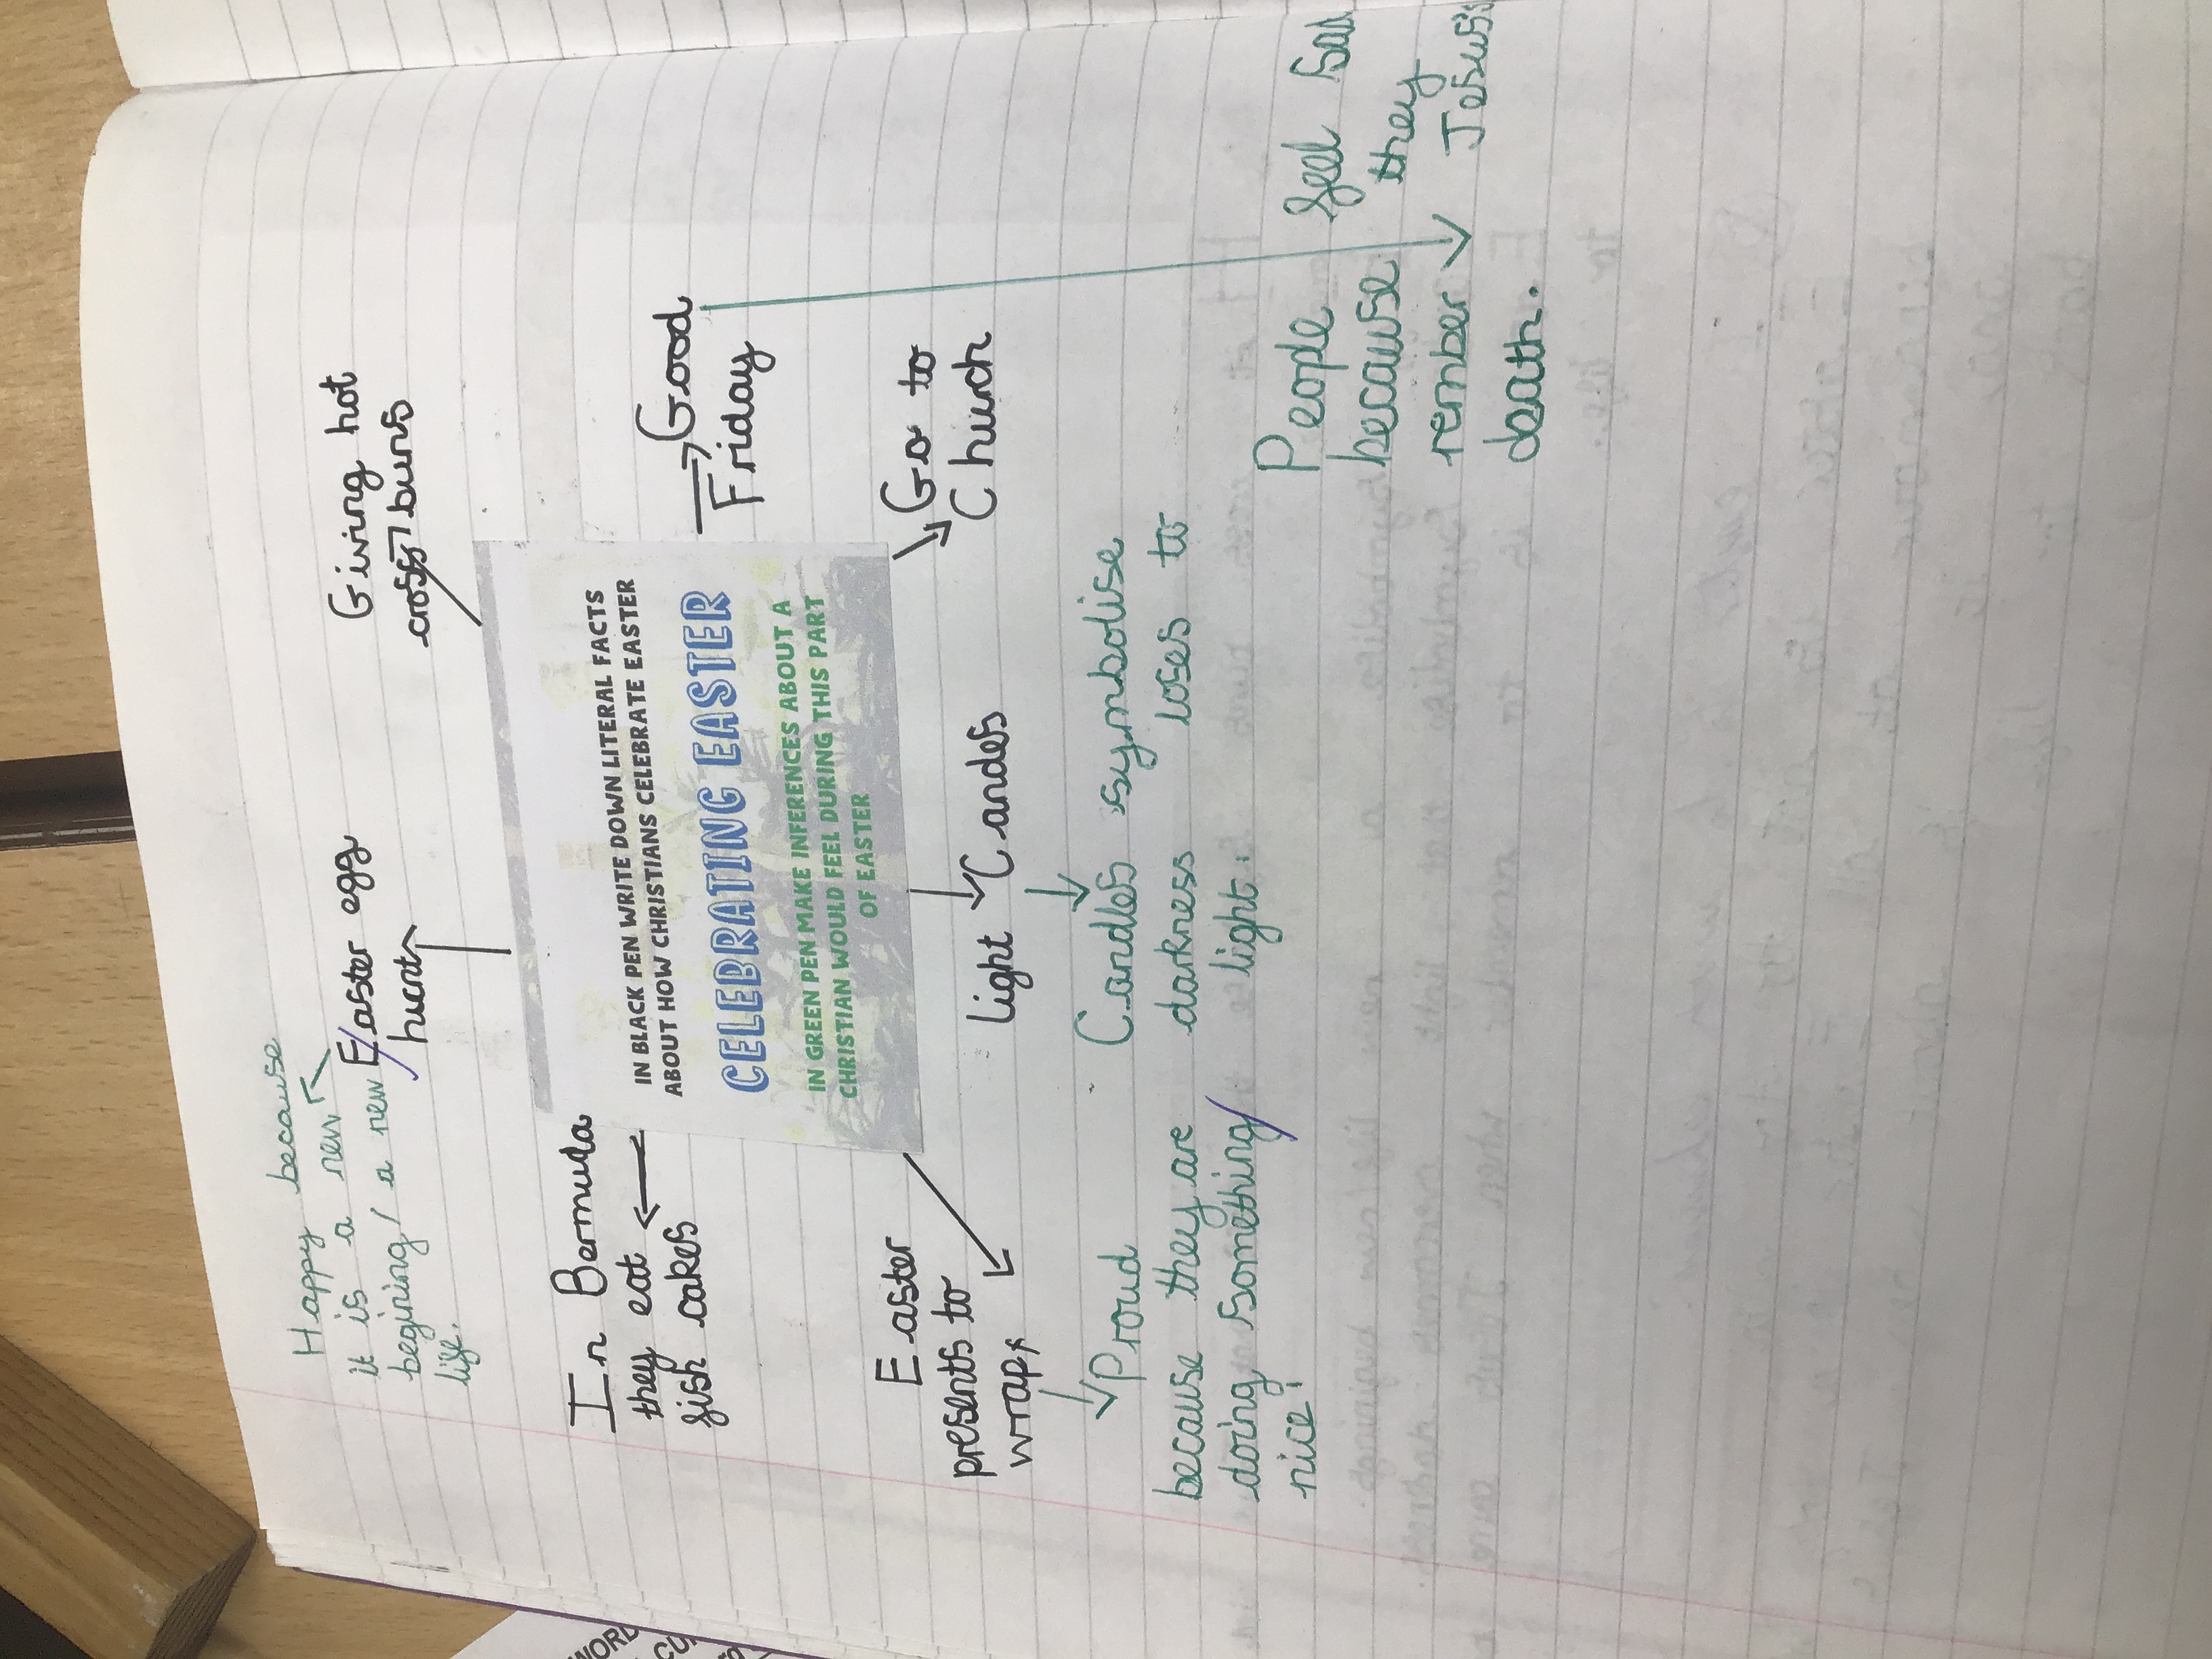 Happy because
it is a new
begining/ a new
life.
Easter egg
hunt
Giving hot
cross buns
In Bermuda
they eat
fish cakes
IN BLACK PEN WRITE DOWN LITERAL FACTS
ABOUT HOW CHRISTIANS CELEBRATE EASTER
CELEBRATING EASTER
IN GREEN PEN MAKE INFERENCES ABOUT A
CHRISTIAN WOULD FEEL DURING THIS PART
OF EASTER
Good
Friday
Easter
presents to
wrap
Light Candes
Go to
Church
Proud
because they are
doing something
nice!
Candles symbolise
darkness loses to
light.
People feel sad
because they
rember Jesus's
death.
WORD